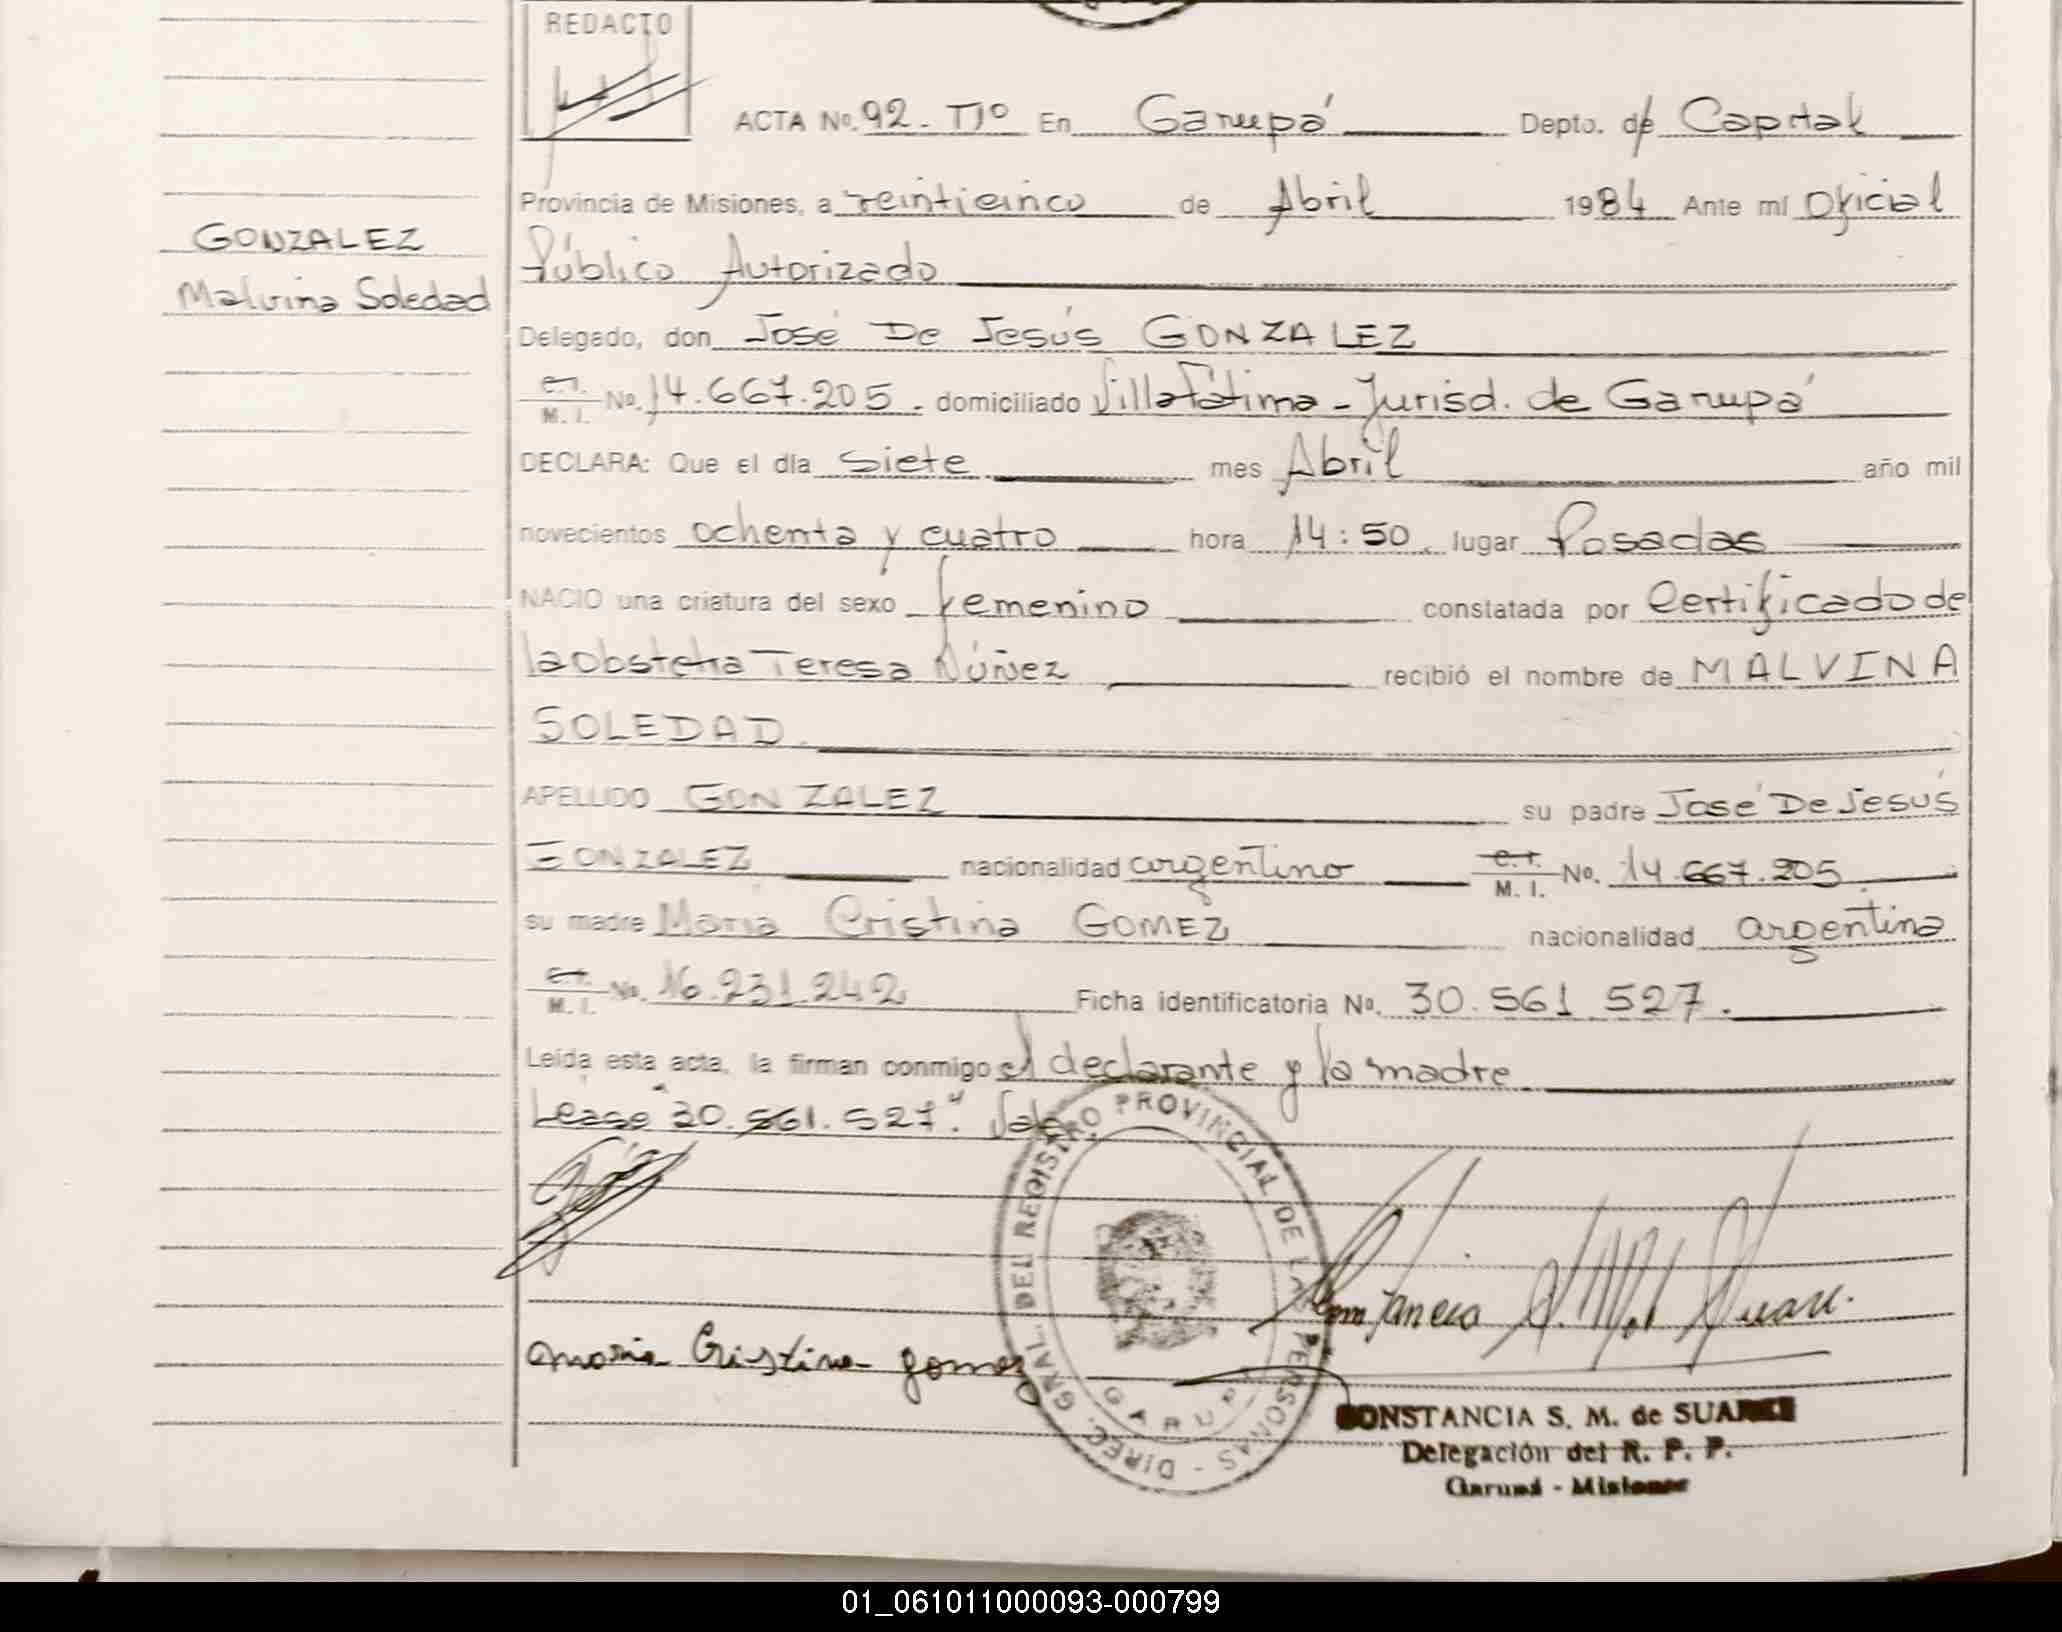 REDACTO
ACTA Nº. 92 - Tº En Garupá Depto. de Capital
Provincia de Misiones, a veinticinco de Abril 1984 Ante mí Oficial
Público Autorizado
GONZALEZ
Malvina Soledad
Delegado, don José De Jesús GONZALEZ
C.I. M. I. No. 14.667.205. domiciliado Villa Fátima - Jurisd. de Garupá
DECLARA: Que el día siete mes Abril año mil
novecientos ochenta y cuatro hora 14:50. lugar Posadas
NACIO una criatura del sexo femenino constatada por Certificado de
la Obstetra Teresa Núñez recibió el nombre de MALVINA
SOLEDAD
APELLIDO GONZALEZ su padre José De Jesús
GONZALEZ nacionalidad argentino C.I. M. I. No. 14.667.205.
su madre María Cristina GOMEZ nacionalidad argentina
C.I. M. I. No. 16.231.242 Ficha identificatoria Nº. 30.561 527.
Leída esta acta, la firman conmigo el declarante y la madre
Lease "30.561.527". Vale.
DIREC. GRAL. DEL REGISTRO PROVINCIAL DE LAS PERSONAS -
GARUPA
María Cristina gomez
CONSTANCIA S. M. de SUAREZ
Delegación del R. P. P.
Garupá - Misiones
01_061011000093-000799